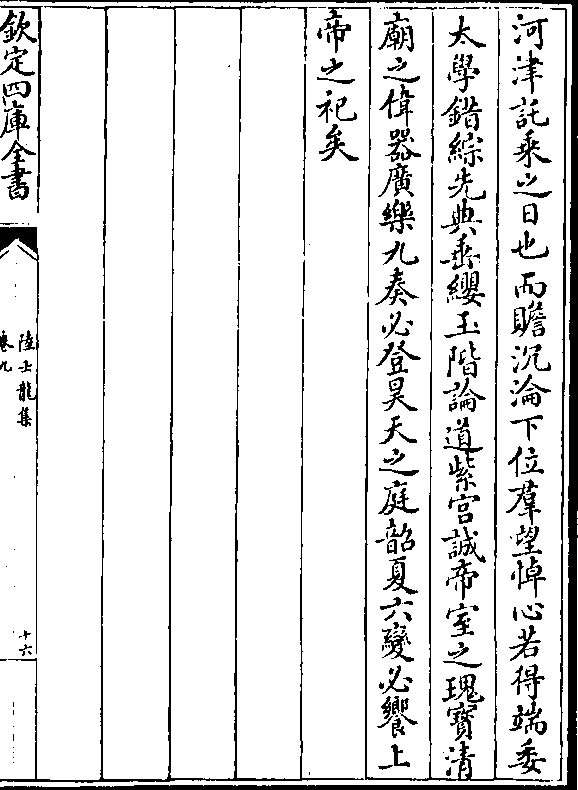 河津託乗之日也而瞻沉淪下位羣望悼心若得端委
太學錯綜先典垂纓玉階論道紫宫誠帝室之瑰寳清
廟之偉器廣樂九奏必登昊天之庭韶夏六變必饗上
帝之祀矣
欽定四庫全書
陸士龍集
卷九
十六